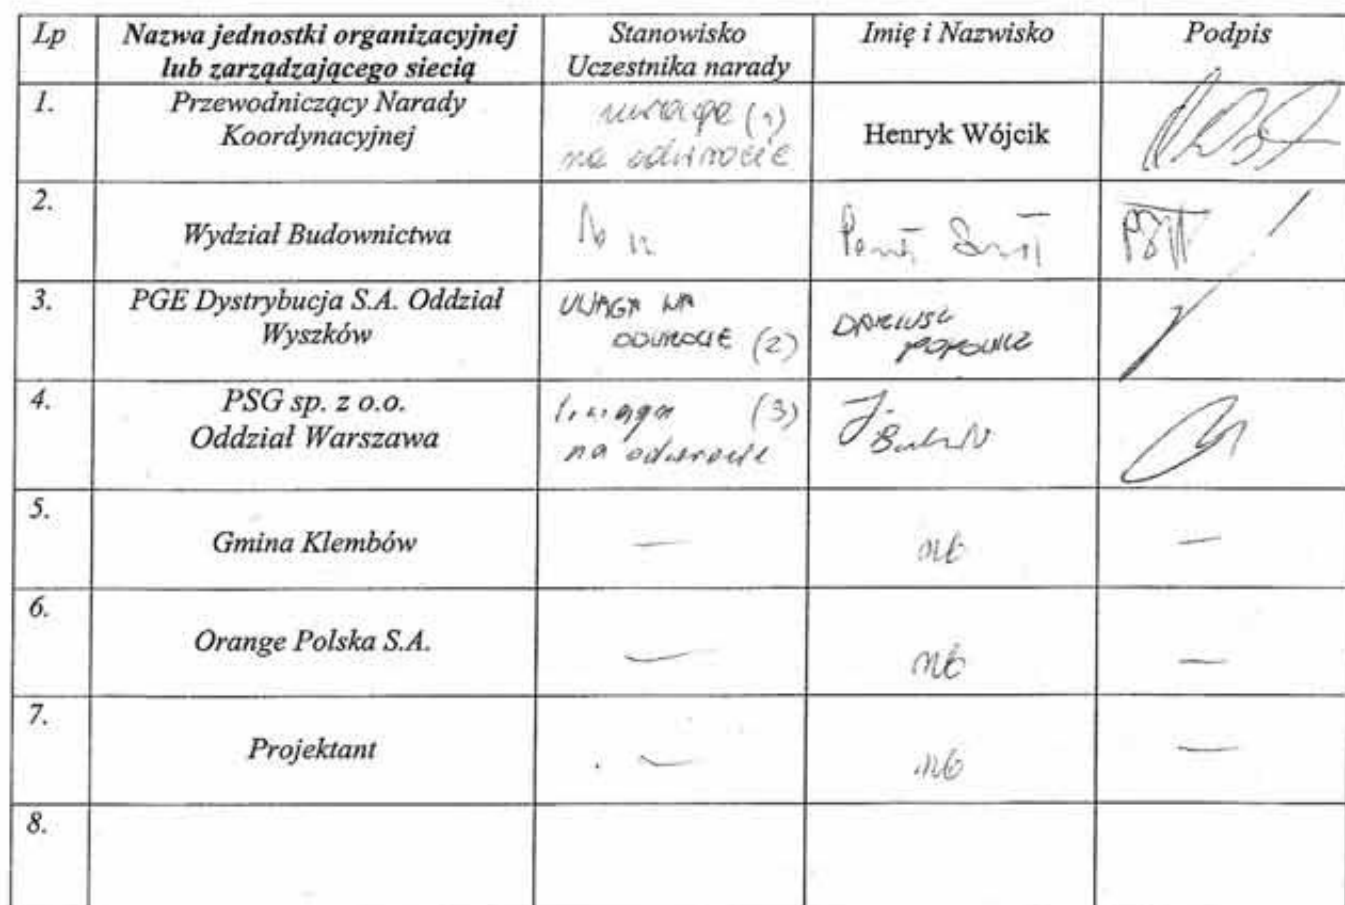 Lp
Nazwa jednostki organizacyjnej
lub zarządzającego siecią
Stanowisko
Uczestnika narady
Imię i Nazwisko
Podpis
1.
Przewodniczący Narady
Koordynacyjnej
uwaga (1)
na odwrocie
Henryk Wójcik
2.
Wydział Budownictwa
3.
PGE Dystrybucja S.A. Oddział
Wyszków
UWAGA NA
ODWROCIE (2)
DARIUSZ
4.
PSG sp. z o.o.
Oddział Warszawa
uwaga (3)
na odwrocie
J.
5.
Gmina Klembów
—
nb
—
6.
Orange Polska S.A.
—
nb
—
7.
Projektant
—
nb
—
8.